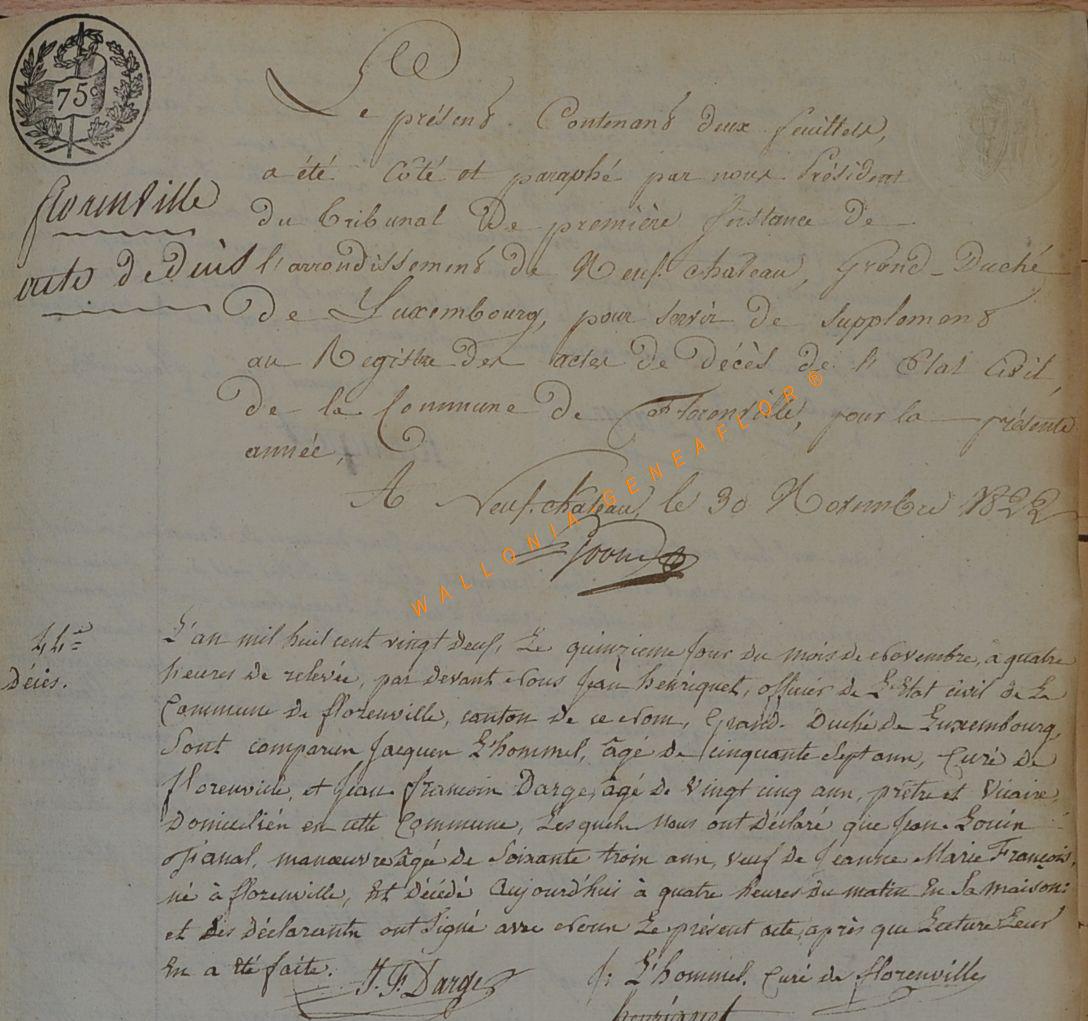 75c
Le présent Contenant deux feuillets,
a été Côté et paraphé par nous Président
du tribunal De première Instance de
l'arrondissement de Neufchateau, Grand-Duché
De Luxembourg, pour servir de supplement
au Registre des actes de Décès de l'Etat Civil,
De la Commune de Florenville, pour la présente
année,
A Neufchateau, le 30 Novembre 1822
florenville
acte de décès
WALLONIA GENEAFLOR®
44e
Décès.
L'an mil huit cent vingt Deux, Le quinzieme Jour du mois de Novembre, à quatre
heures de relevée, par devant Nous Jean henriquet, officier de L'Etat civil de La
Commune de florenville, canton de ce Nom, Grand-Duché de Luxembourg,
Sont comparus Jacques L'hommel, âgé de Cinquante Sept ans, Curé de
florenville, et Jean françois Darge, âgé de Vingt cinq ans, prêtre et Vicaire,
Domiciliés en cette Commune, Lesquels Nous ont Déclaré que Jean Louis
manœuvre âgé de Soixante trois ans, veuf de Jeanne Marie François,
né à florenville, Est Décédé Aujourd'hui à quatre heures du matin En Sa maison:
et Les Déclarants ont Signé avec Nous Le présent acte, après que Lecture Leur
En a été faite.
J. F. Darge
J: L'hommel, Curé de florenville
henriquet